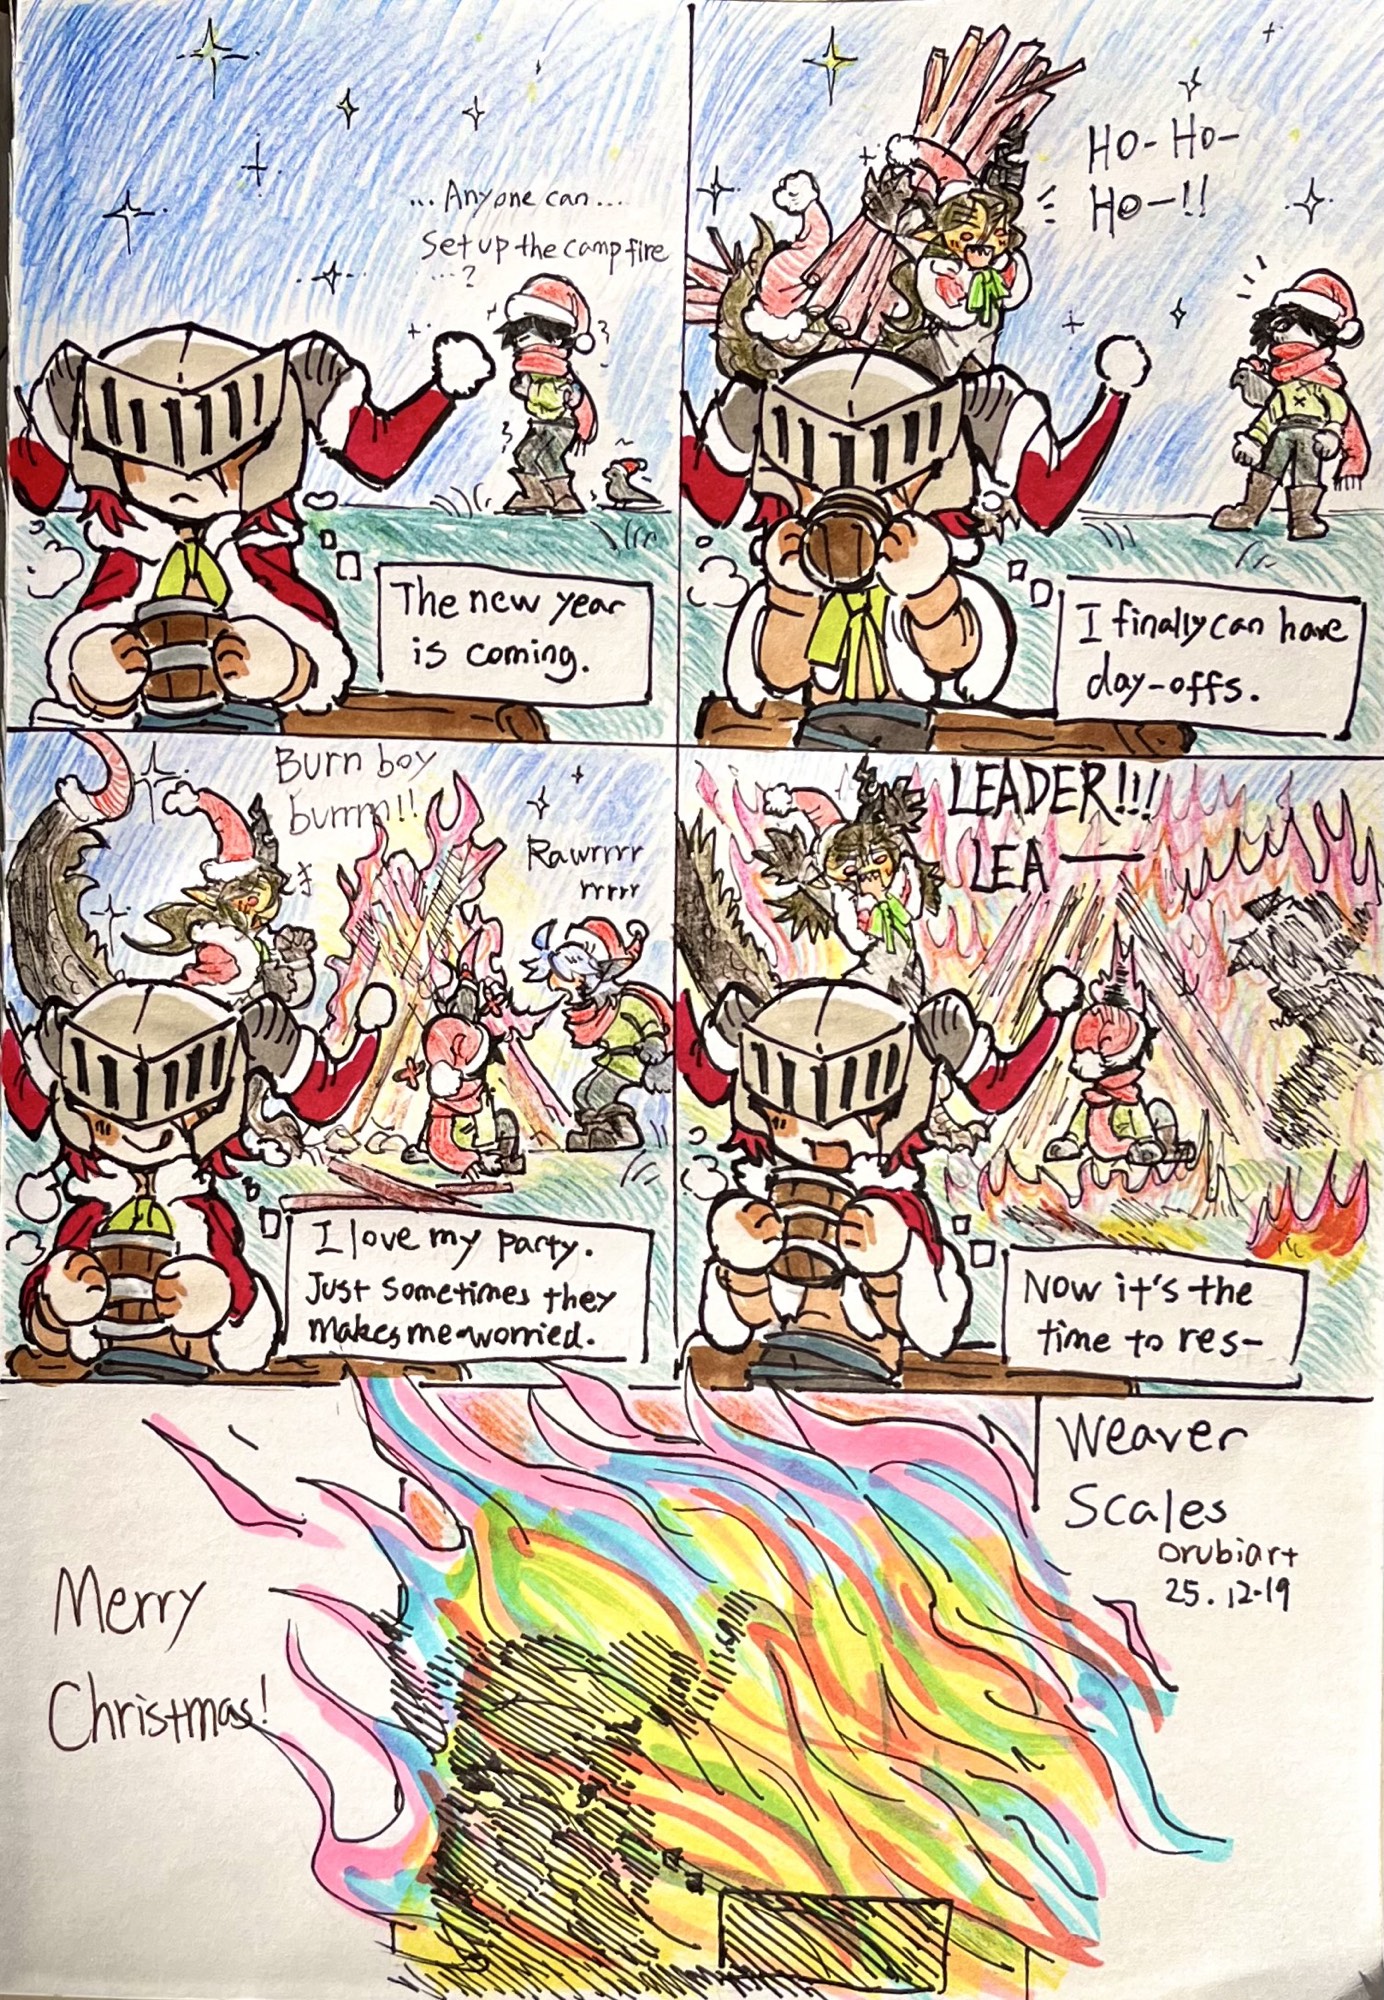 ...Anyone can...
Set up the campfire
...?
The new year
is coming.
HO-HO-
HO-!!
I finally can have
day-offs.
Burn boy
burrrn!!
Rawrrrr
rrrrr
I love my party.
Just sometimes they
makes me worried.
LEADER!!!
LEA—
Now it's the
time to res-
Merry
Christmas!
Weaver
Scales
orubiart
25.12.19